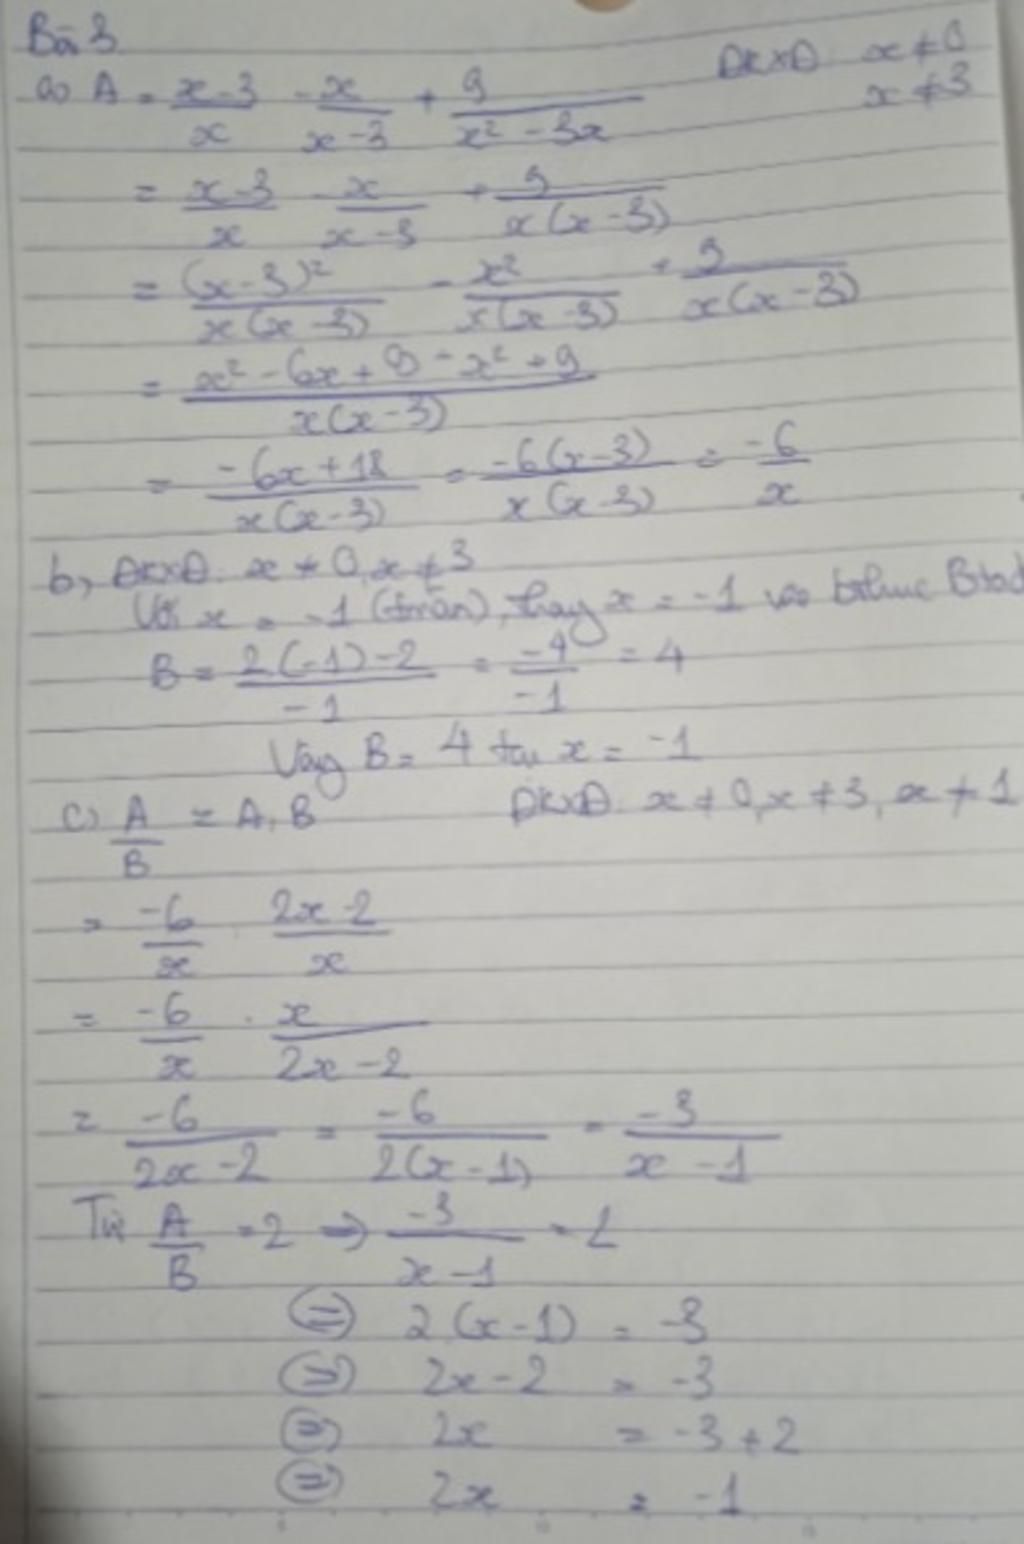 Bài 3
a) A = (x-3)/x - x/(x-3) + 9/(x² - 3x) ĐKXĐ x ≠ 0
x ≠ 3
= (x-3)/x - x/(x-3) + 9/(x(x-3))
= (x-3)²/(x(x-3)) - x²/(x(x-3)) + 9/(x(x-3))
= (x² - 6x + 9 - x² + 9)/(x(x-3))
= (-6x + 18)/(x(x-3)) = -6(x-3)/(x(x-3)) = -6/x
b, ĐKXĐ. x ≠ 0, x ≠ 3
Với x = -1 (tmãn), thay x = -1 vào bthuc B
B = (2(-1)-2)/-1 = -4/-1 = 4
Vậy B = 4 tại x = -1
c) A/B = A, B ĐKXĐ. x ≠ 0, x ≠ 3, x ≠ 1
= -6/x . (2x-2)/x
= -6/x . x/(2x-2)
= -6/(2x-2) = -6/(2(x-1)) = -3/(x-1)
Từ A/B = 2 => -3/(x-1) = 2
(=) 2(x-1) = -3
(=) 2x-2 = -3
(=) 2x = -3+2
(=) 2x = -1